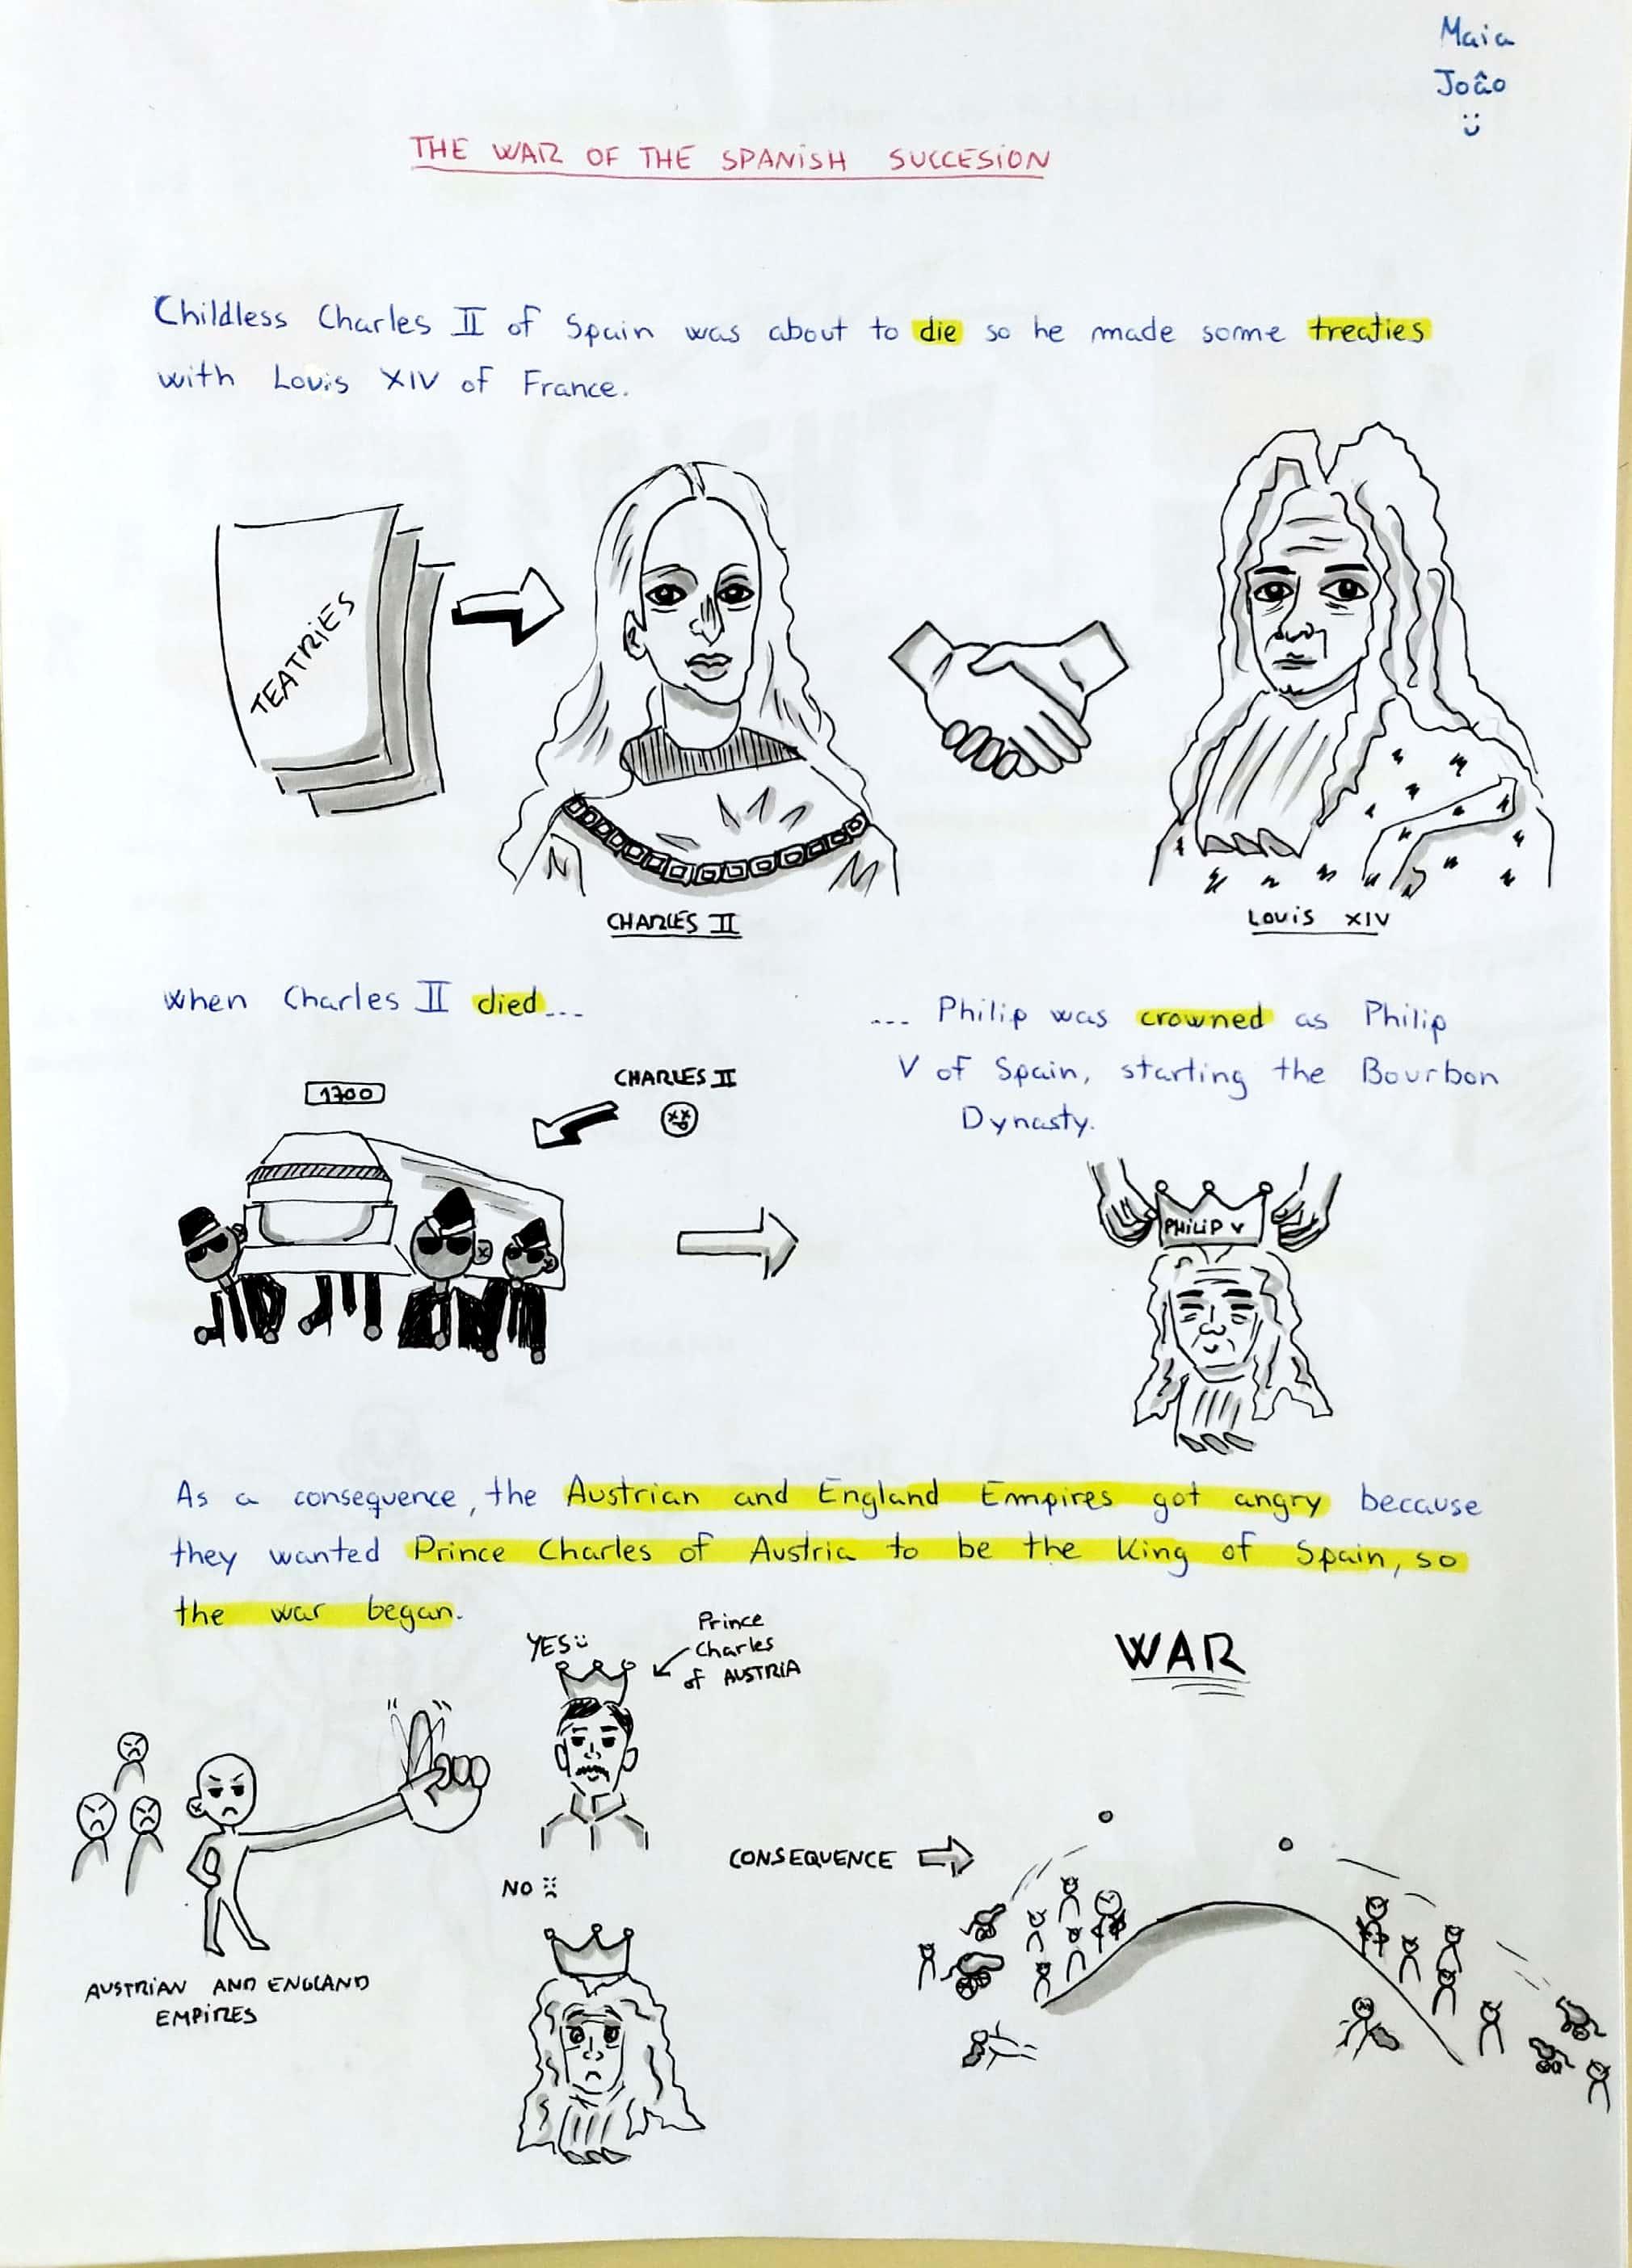 Maia
João
THE WAR OF THE SPANISH SUCCESION
Childless Charles II of Spain was about to die so he made some treaties
with Louis XIV of France.
TEATRIES
CHARLES II
LOUIS XIV
When Charles II died...
... Philip was crowned as Philip
V of Spain, starting the Bourbon
Dynasty.
1700
CHARLES II
PHILIP V
As a consequence, the Austrian and England Empires got angry because
they wanted Prince Charles of Austria to be the King of Spain, so
the war began.
YES
Prince
Charles
of AUSTRIA
WAR
CONSEQUENCE
NO
AUSTRIAN AND ENGLAND
EMPIRES